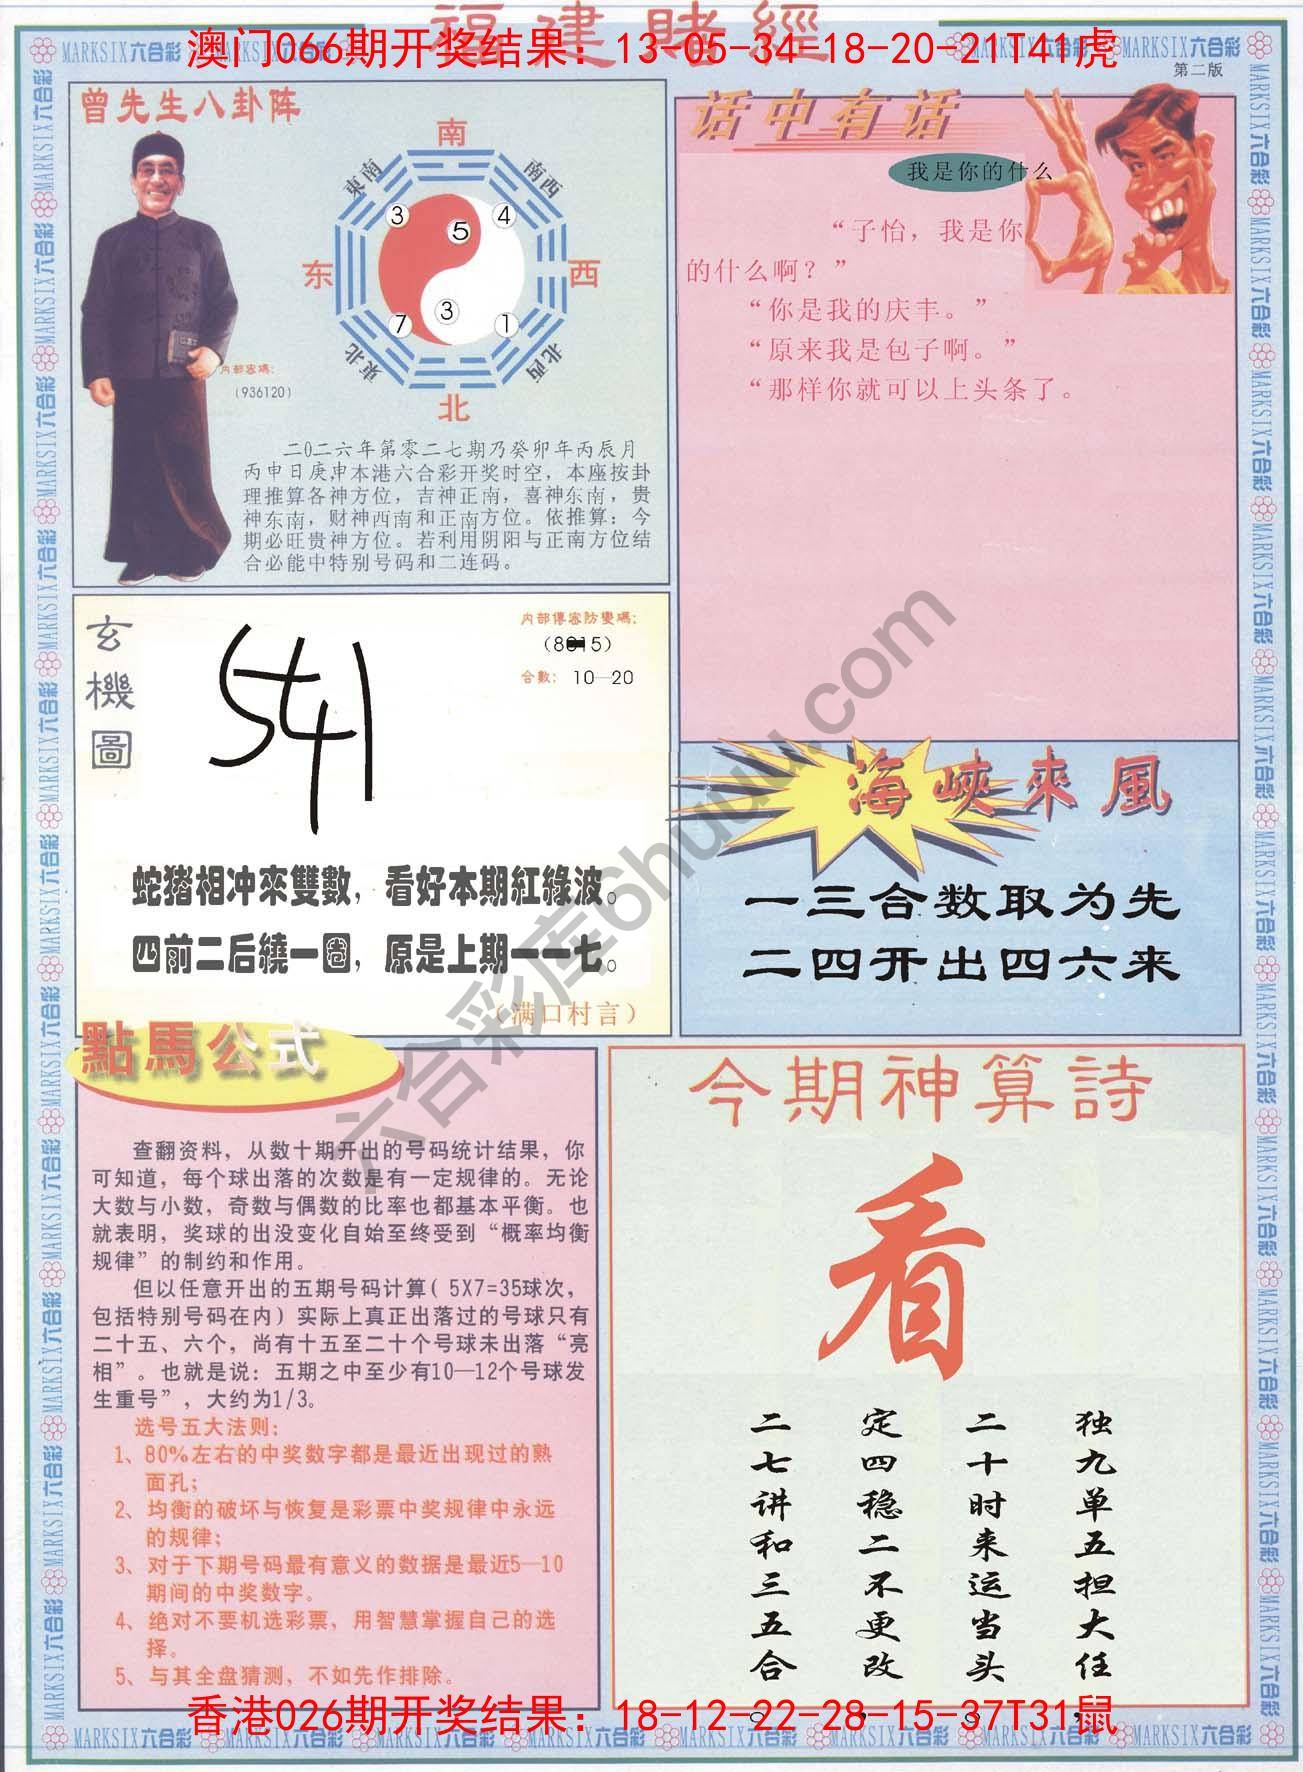 福建賭經
澳门066期开奖结果：13-05-34-18-20-21T41虎
MARKSIX六合彩
第二版
曾先生八卦阵
南
東南
南西
3
5
4
东
西
3
7
1
東北
北西
北
内部密碼：
（936120）
二0二六年第零二七期乃癸卯年丙辰月
丙申日庚申本港六合彩开奖时空，本座按卦
理推算各神方位，吉神正南，喜神东南，贵
神东南，财神西南和正南方位。依推算：今
期必旺贵神方位。若利用阴阳与正南方位结
合必能中特别号码和二连码。
话中有话
我是你的什么
“子怡，我是你
的什么啊？”
“你是我的庆丰。”
“原来我是包子啊。”
“那样你就可以上头条了。
玄機圖
内部傳密防變碼：
合數： 10—20
541
蛇猪相冲來雙數，看好本期紅綠波。
四前二后繞一圈，原是上期一一七。
（满口村言）
海峽來風
一三合数取为先
二四开出四六来
六合彩库6huuu.com
點馬公式
查翻资料，从数十期开出的号码统计结果，你
可知道，每个球出落的次数是有一定规律的。无论
大数与小数，奇数与偶数的比率也都基本平衡。也
就表明，奖球的出没变化自始至终受到“概率均衡
规律”的制约和作用。
但以任意开出的五期号码计算（5X7=35球次，
包括特别号码在内）实际上真正出落过的号球只有
二十五、六个，尚有十五至二十个号球未出落“亮
相”。也就是说：五期之中至少有10—12个号球发
生重号”，大约为1/3。
选号五大法则：
1、80%左右的中奖数字都是最近出现过的熟
面孔；
2、均衡的破坏与恢复是彩票中奖规律中永远
的规律；
3、对于下期号码最有意义的数据是最近5—10
期间的中奖数字。
4、绝对不要机选彩票，用智慧掌握自己的选
择。
5、与其全盘猜测，不如先作排除。
今期神算詩
看
独九单五担大任，
二十时来运当头。
定四稳二不更改，
二七讲和三五合。
香港026期开奖结果：18-12-22-28-15-37T31鼠
MARKSIX六合彩